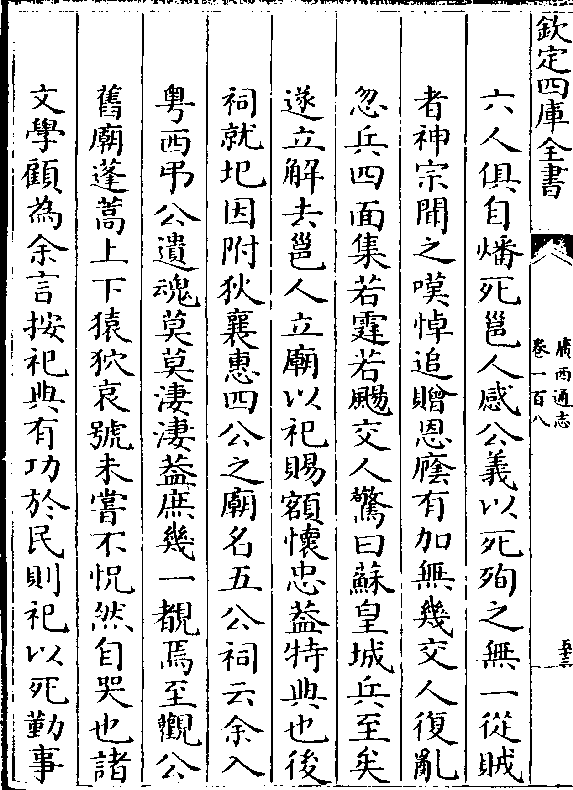 欽定四庫全書
廣西通志
卷一百八
六人俱自燔死邕人感公義以死殉之無一從賊
者神宗聞之嘆悼追贈恩廕有加無幾交人復亂
忽兵四面集若霆若颺交人驚曰蘇皇城兵至矣
遂立解去邕人立廟以祀賜額懷忠葢特典也後
祠就圮因附狄襄惠四公之廟名五公祠云余入
粤西弔公遺魂莫莫淒淒葢庶幾一覩焉至觀公
舊廟蓬蒿上下猿狖哀號未嘗不怳然自哭也諸
文學顧為余言按祀典有功於民則祀以死勤事